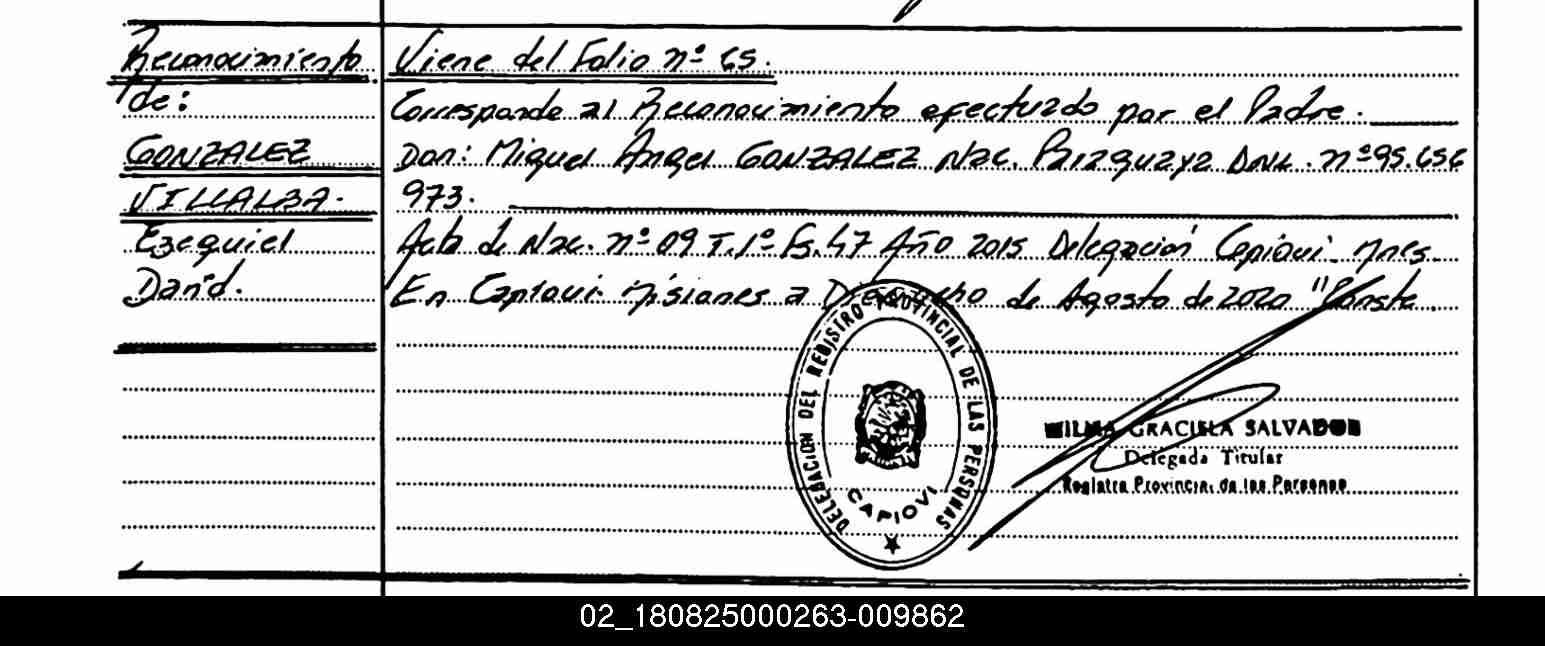 Reconocimiento
de:
GONZALEZ
VILLALBA.
Ezequiel
David.
Viene del Folio nº 65.
Corresponde al Reconocimiento efectuado por el Padre.
Don: Miguel Angel GONZALEZ Nac. Paraguaya DNI. nº 95.656
973.
Acta de Nac. nº 09 T.1º Fs.47 Año 2015 Delegación Capiovi. Mnes.
En Capiovi Misiones a Dieciocho de Agosto de 2020 "Conste
DELEGACION DEL REGISTRO PROVINCIAL DE LAS PERSONAS
CAPIOVI
WILMA GRACIELA SALVADOR
Delegada Titular
Registro Provincial de las Personas
02_180825000263-009862